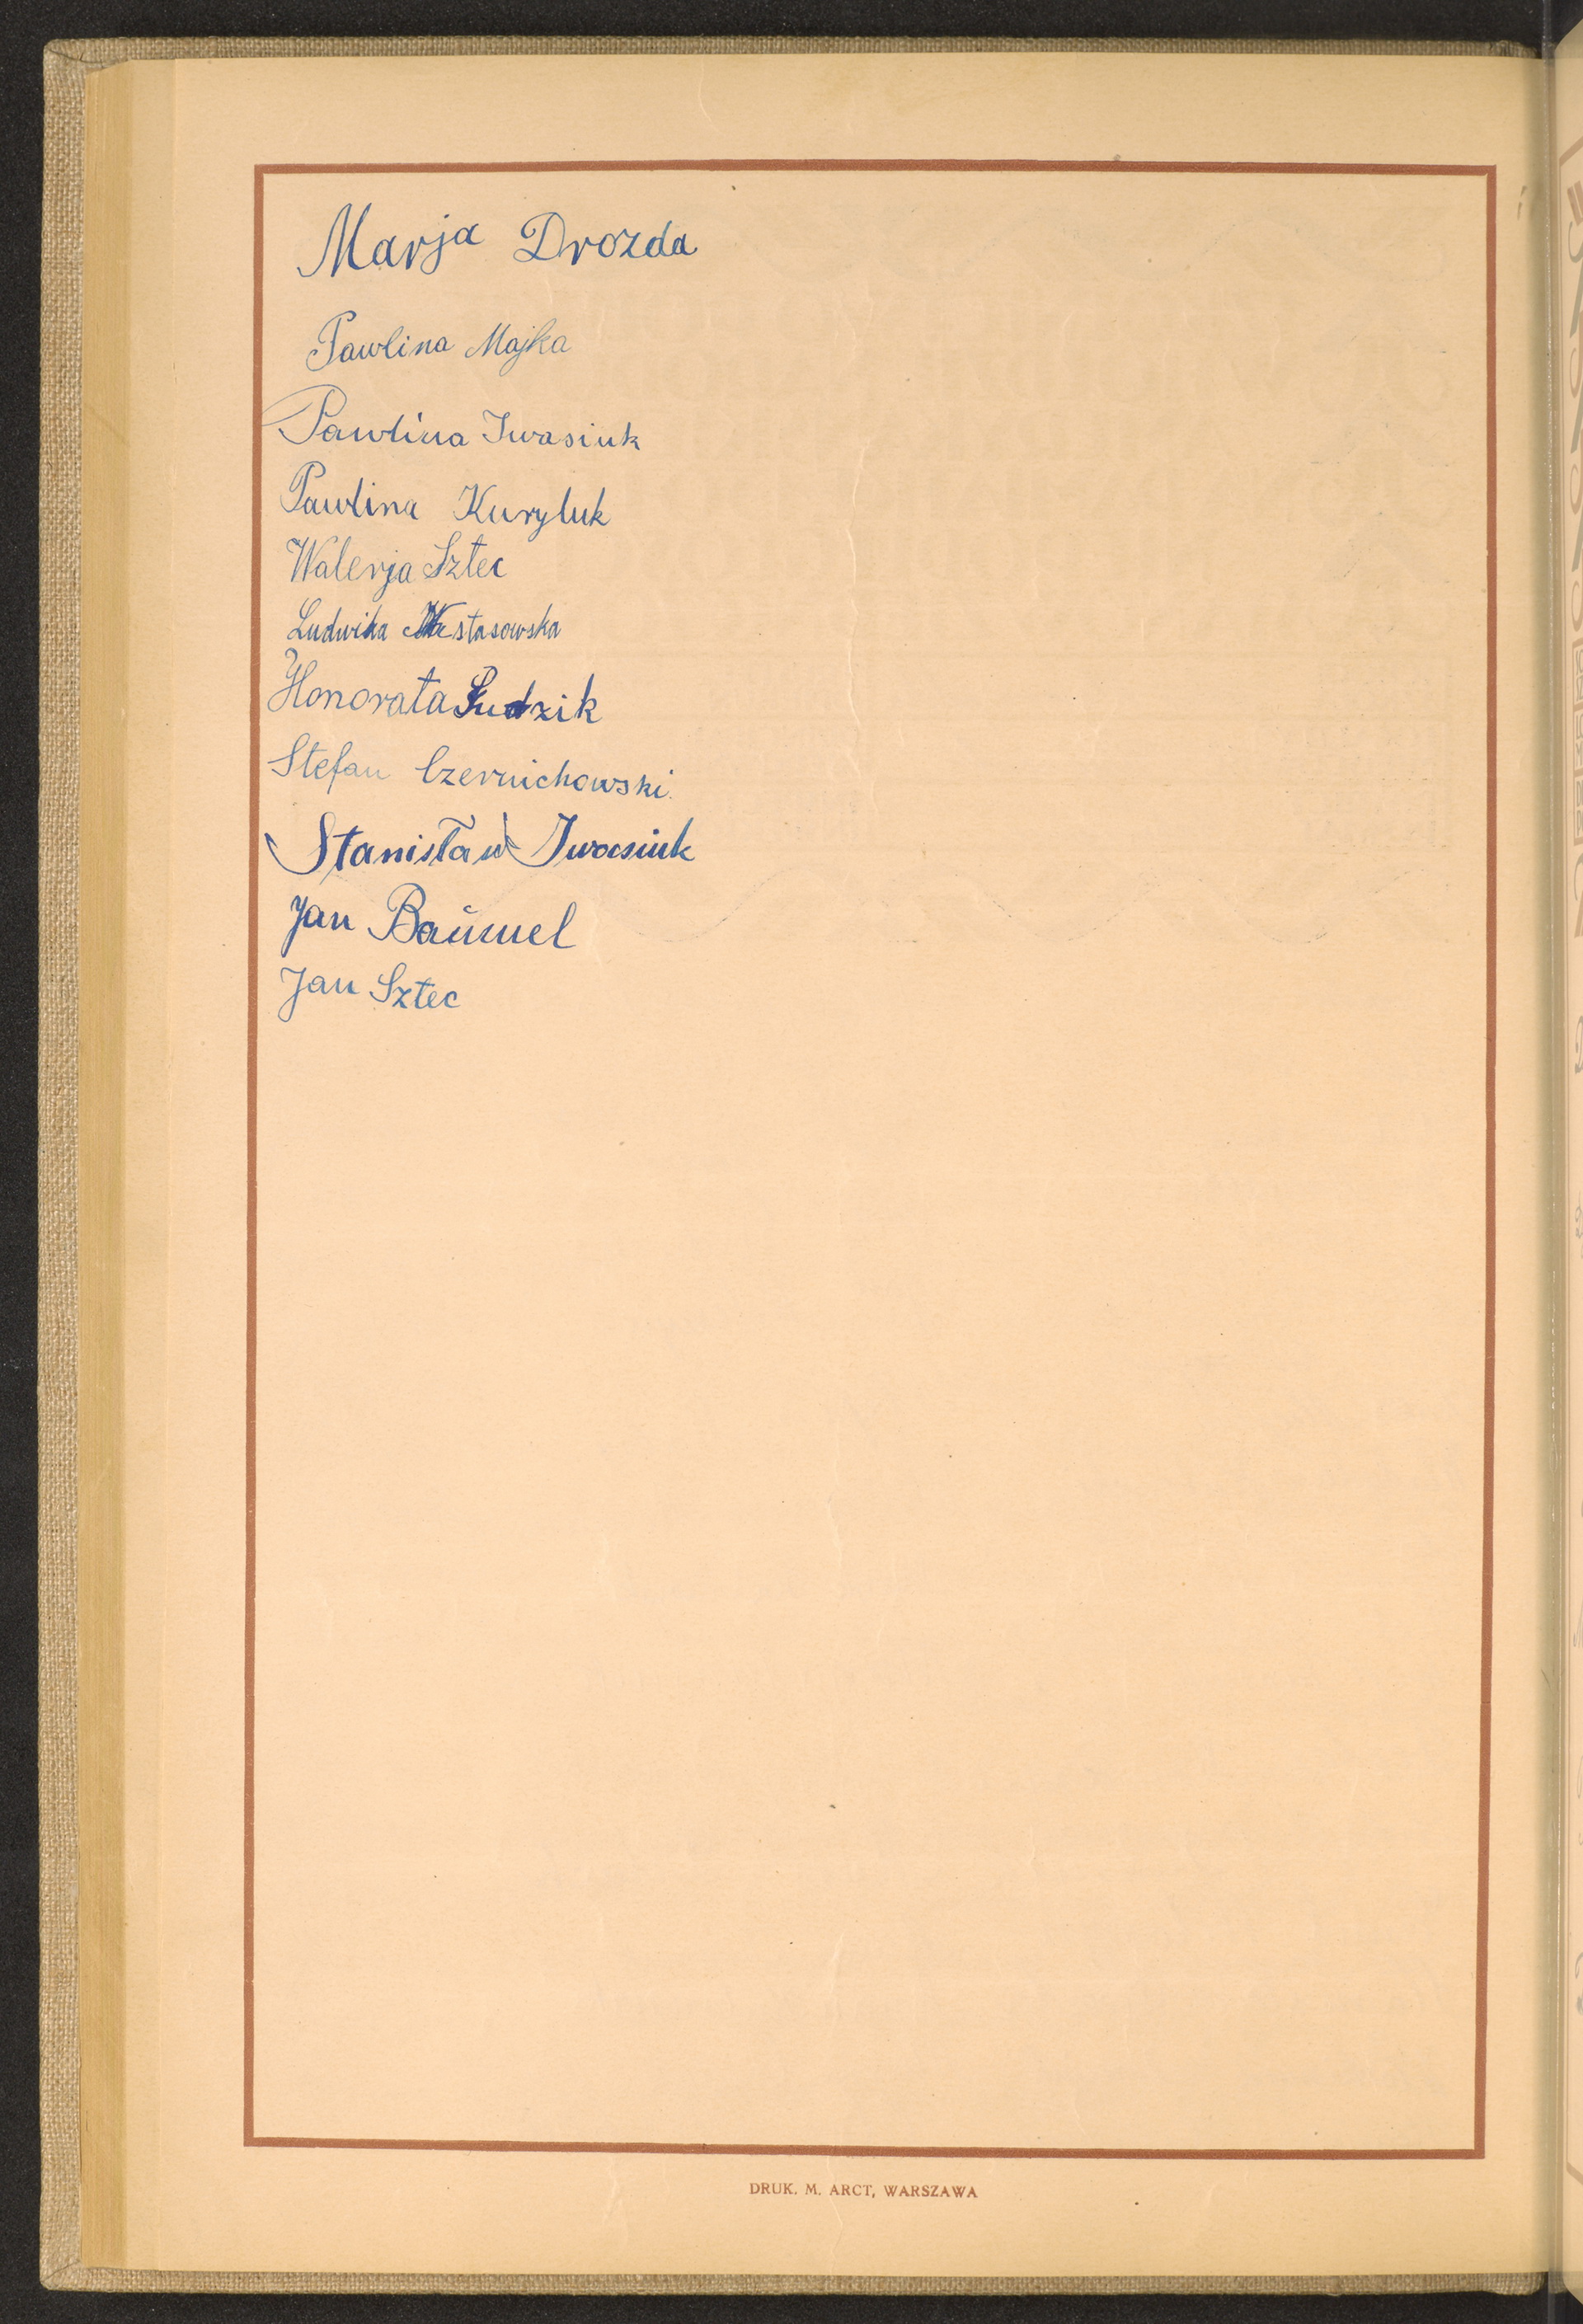 Marja Drozda
Pawlina Majka
Pawlina Iwasiuk
Pawlina Kuryluk
Walerja Sztec
Ludwika
Honorata Sudzik
Stefan Czernichowski.
Stanisław Iwasiuk
Jan Baümel
Jan Sztec
DRUK. M. ARCT, WARSZAWA